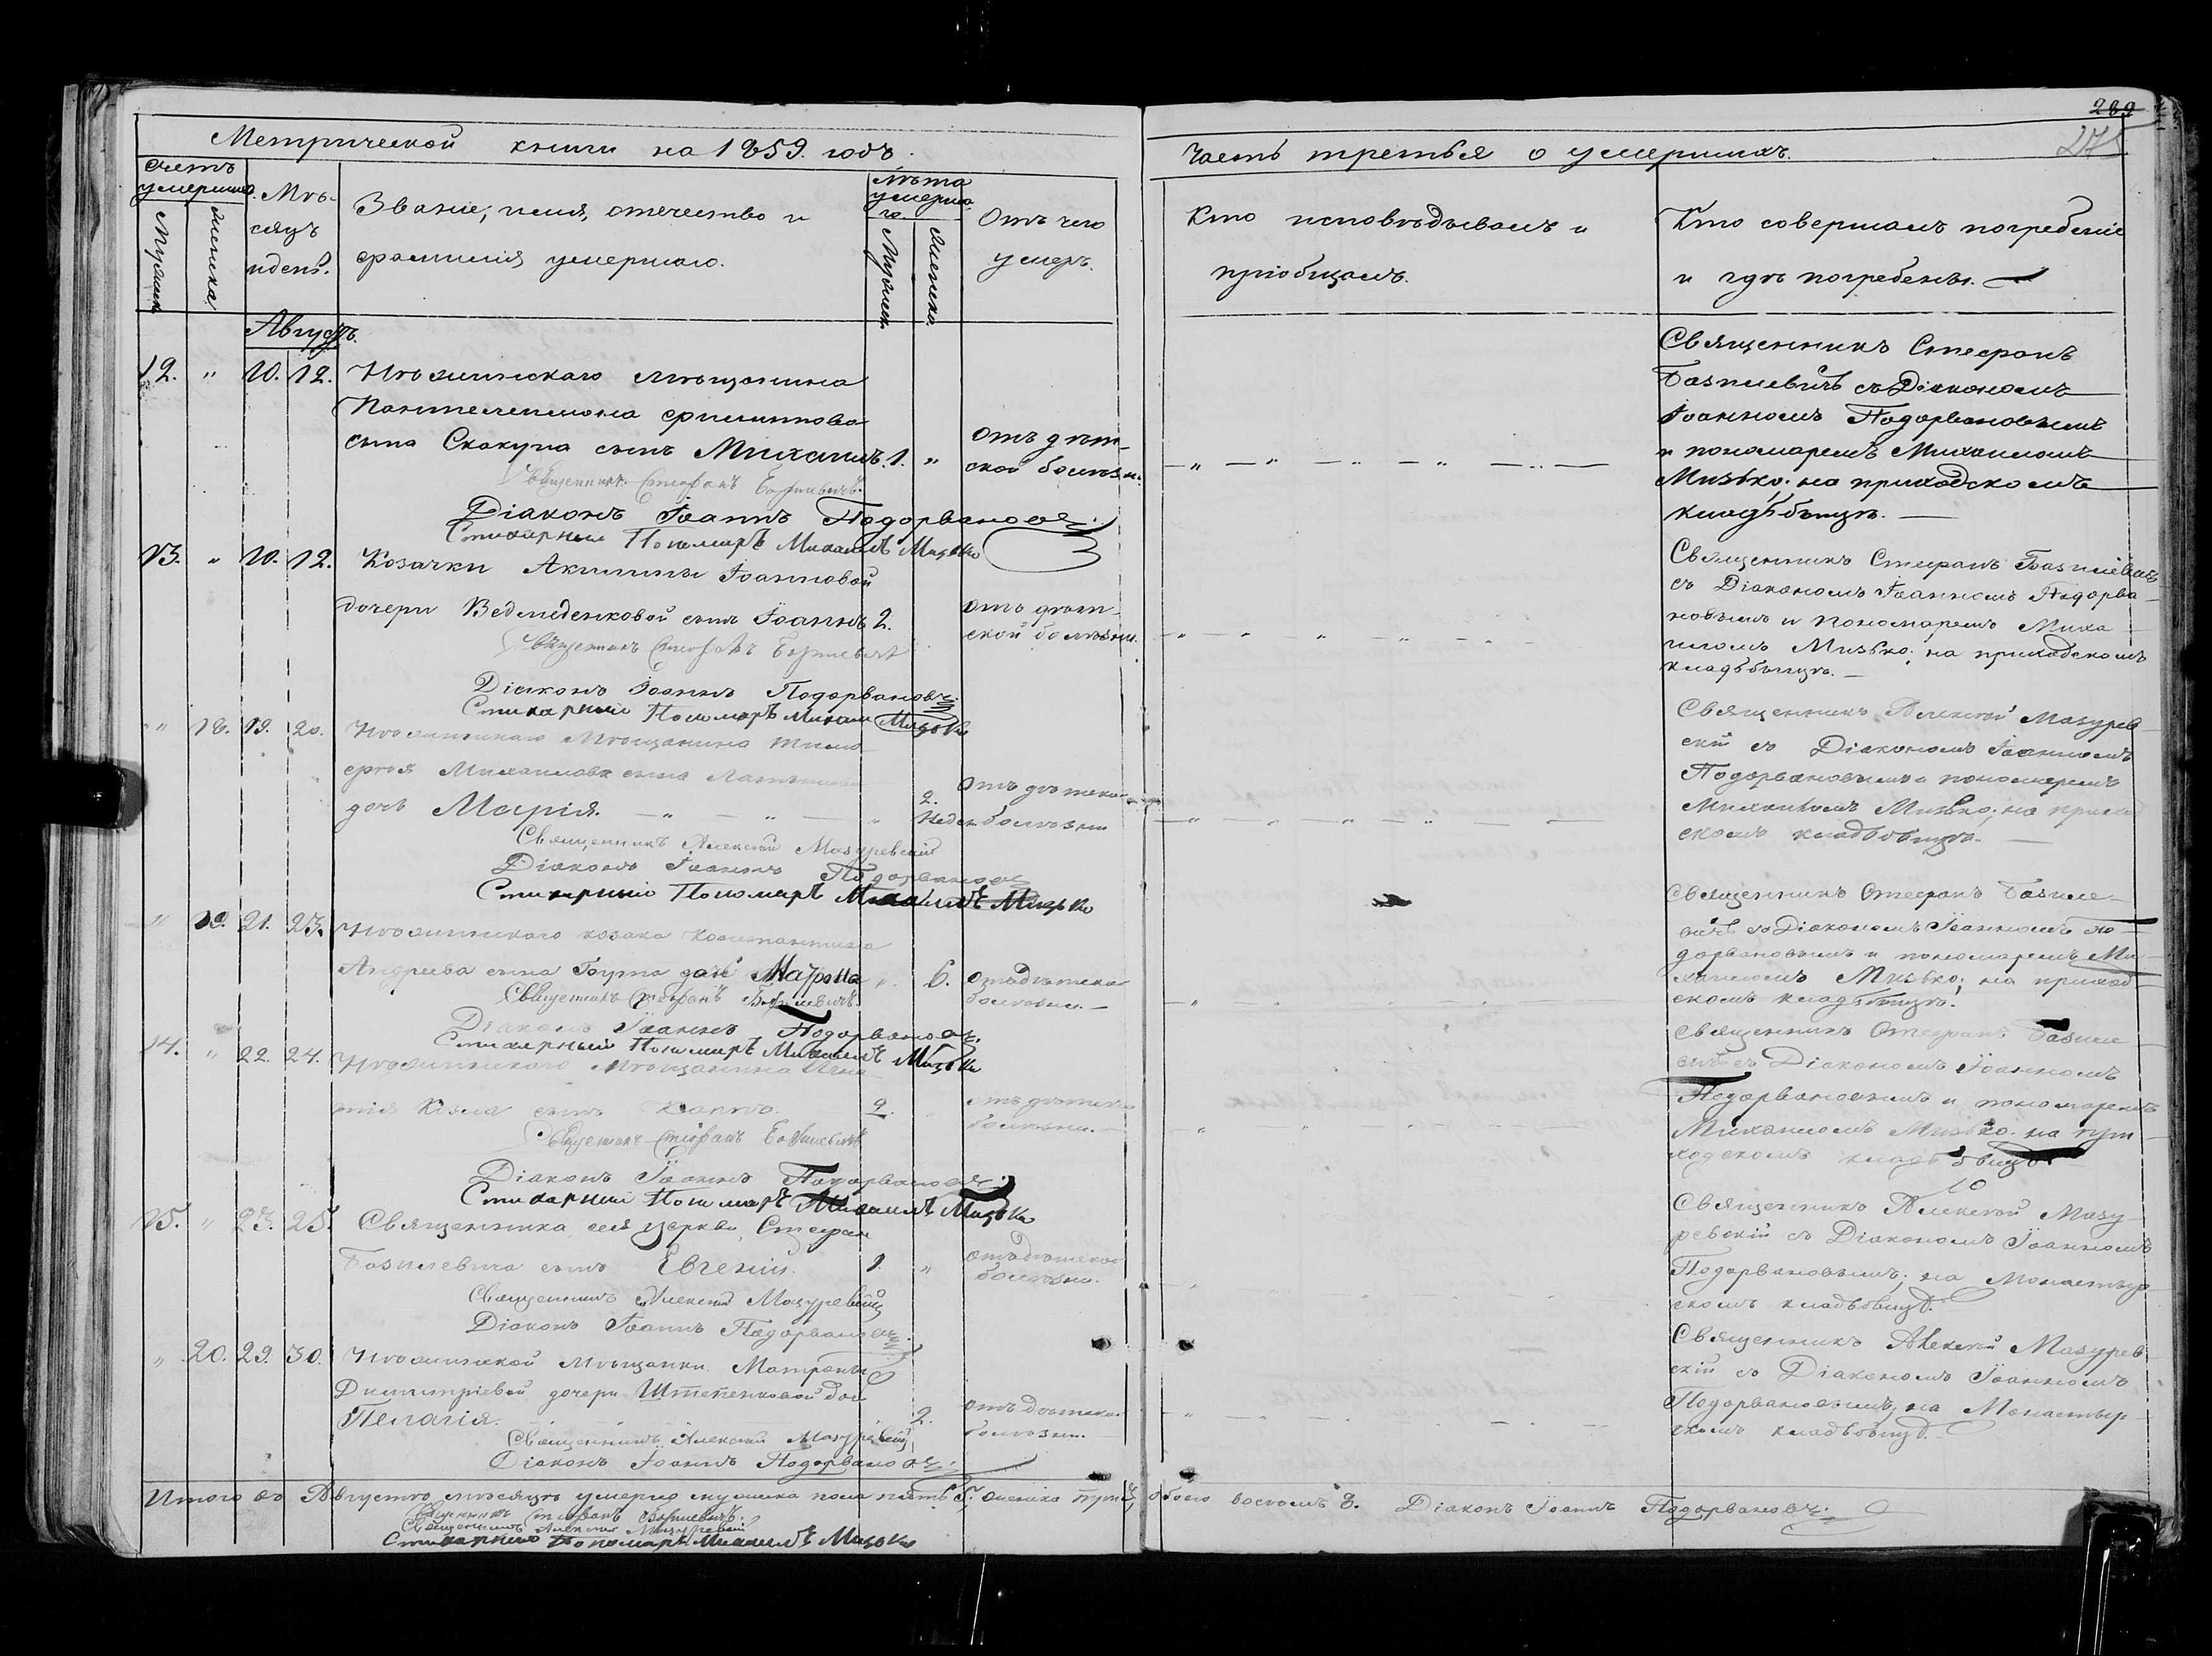 289
275
Метрической книги на 1859. годъ.
Часть третья о умершихъ.
Счетъ умерших.
Мужеска
Женска
Мѣ-
сяцъ
и день.
Званіе, имя, отечество и
фамилія умершаго.
Лѣта умерша
го
Мужеск.
Женско.
Отъ чего
умеръ.
Кто исповѣдывалъ и
пріобщалъ.
Кто совершалъ погребеніе
и гдѣ погребены.
Августъ.
12. " 10. 12. Нѣжинскаго мѣщанина
Пантелеимона Филиппова
сына Скакуна сынъ Михаилъ. 1. " отъ дѣт-
ской болѣзн.
Священникъ Стефанъ Базилевичъ.
Діаконъ Іоаннъ Подорвановъ.
Стихарный Пономарь Михаилъ Мизько
Священникъ Стефанъ
Базилевичъ съ Діакономъ
Іоанномъ Подорвановымъ
и пономаремъ Михаиломъ
Мизько: на приходскомъ
кладбѣищѣ.
13. " 10. 12. Козачки Акилины Іоанновой
дочери Ведмеденковой сынъ Іоаннъ 2. отъ дѣт-
ской болѣзни.
Священникъ Стефанъ Базилевичъ
Діаконъ Іоаннъ Подорвановъ.
Стихарный Пономарь Михаилъ Мизько
Священникъ Стефанъ Базилевичъ
съ Діакономъ Іоанномъ Подорва-
новымъ и пономаремъ Миха-
иломъ Мизько; на приходскомъ
кладбѣищѣ.
" 18. 19. 20. Нѣжинскаго Мѣщанина Тимо-
фея Михаилова сына
дочь Марія. 2. Недѣл. Отъ дѣтско
болѣзни
Священникъ Алексѣй Мазуревскій
Діаконъ Іоаннъ Подорвановъ
Стихарный Пономарь Михаилъ Мизько
Священникъ Алексѣй Мазурев-
скій съ Діакономъ Іоанномъ
Подорвановымъ и пономаремъ
Михаиломъ Мизько; на приход
скомъ кладбѣищѣ.
" 19. 21. 23. Нѣжинскаго козака Константина
Андреева сына дочь Матрона 6. отъ дѣтско
болѣзни.
Священникъ Стефанъ Базилевичъ.
Діаконъ Іоаннъ Подорвановъ.
Стихарный Пономарь Михаилъ Мизько
Священникъ Стефанъ Базиле-
вичъ съ Діакономъ Іоанномъ По-
дорвановымъ и пономаремъ Ми-
хаиломъ Мизько; на приход-
скомъ кладбѣищѣ.
14. " 22. 24. Нѣжинскаго Мѣщанина Игна-
тія сынъ 9. отъ дѣтско
болѣзни.
Священникъ Стефанъ Базилевичъ
Діаконъ Іоаннъ Подорвановъ.
Стихарный Пономарь Михаилъ Мизько
Священникъ Стефанъ Базиле-
вичъ съ Діакономъ Іоанномъ
Подорвановымъ и пономаремъ
Михаиломъ Мизько: на при-
ходскомъ кладбѣищѣ.
15. " 23. 25. Священника сея церкви, Стефан
Базилевича сынъ Евгеній. 1. " отъ дѣтской
болѣзни.
Священникъ Алексѣй Мазуревскій
Діаконъ Іоаннъ Подорвановъ.
Священникъ Алексѣй Мазу-
ревскій съ Діакономъ Іоанномъ
Подорвановымъ; на Монастыр-
скомъ кладбѣищѣ.
" 20. 29. 30. Нѣжинской мѣщанки Матроны
Димитріевой дочери Штепенковой доч
Пелагія. 2. отъ дѣтско.
болѣзни.
Священникъ Алексѣй Мазуревскій
Діаконъ Іоаннъ Подорвановъ.
Священникъ Алексѣй Мазурев-
скій съ Діакономъ Іоанномъ
Подорвановымъ; на Монастыр-
скомъ кладбѣищѣ.
Итого въ Августѣ мѣсяцѣ умерло мужеска пола пять 5. женска три 3 обоего восемъ 8. Діаконъ Іоаннъ Подорвановъ.
Священникъ Стефанъ Базилевичъ.
Священникъ Алексѣй Мазуревскій
Стихарный Пономарь Михаилъ Мизько